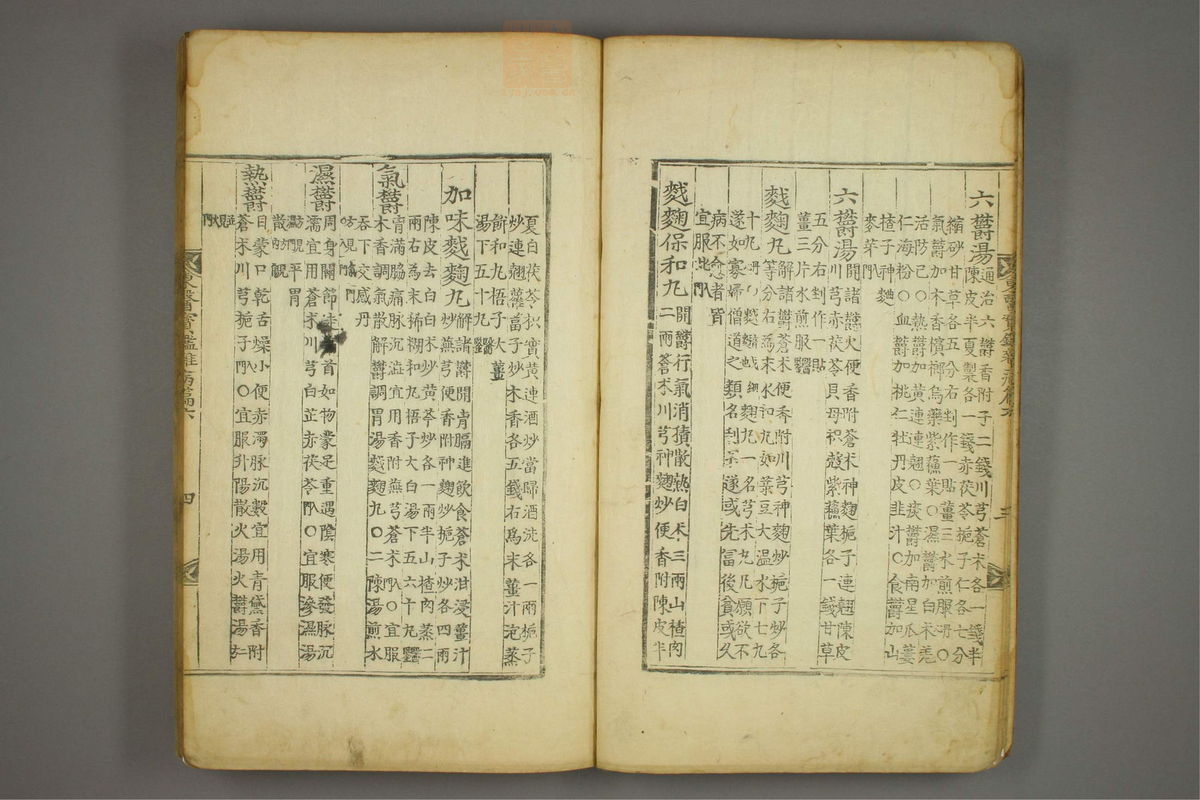 六鬱湯
通治六鬱香附子二錢川芎蒼朮各一錢半
陳皮半夏製各一錢赤茯苓梔子仁各七分
縮砂甘草各五分右剉作一貼薑三水煎服 ○
氣鬱加木香檳榔烏藥紫蘇葉○濕鬱加白朮羌
活防己○熱鬱加黃連連翹○痰鬱加南星瓜蔞
仁海粉○血鬱加桃仁牡丹皮韭汁○食鬱加山
楂子神麯
麥芽
六鬱湯
開諸鬱火便香附蒼朮神麯梔子連翹陳皮
川芎赤茯苓貝母枳殼紫蘇葉各一錢甘草
五分右剉作一貼
薑三片水煎服
䴭麴丸
解諸鬱蒼朮便香附川芎神麯炒梔子炒各
等分右爲末水和丸如菉豆大溫水下七九
十丸 䴭麴丸一名芎朮丸凡願欲不
遂如寡婦僧道之類名利不遂或先富後貧或久
病不愈者皆
宜服此
䴭麴保和丸
開鬱行氣消積散熱白朮三兩山楂肉
二兩蒼朮川芎神麴炒便香附陳皮半
三
夏白茯苓枳實黃連酒炒當歸酒洗各一兩梔子
炒連翹蘿葍子炒木香各五錢右爲末薑汁泡蒸
餅和丸梧子大薑
湯下五十丸
加味䴭麴丸
解諸鬱開胷膈進飲食蒼朮泔浸薑汁
炒蕪芎便香附神麴炒梔子炒各四兩
陳皮去白白朮炒黃芩炒各一兩半山楂肉蒸二
兩右爲末稀糊和丸梧子大白湯下五六十丸
氣鬱
胷滿脇痛脉沉澁宜用香附蕪芎蒼朮 ○宜服
木香調氣散解鬱調胃湯䴭麴丸○二陳湯煎水
吞下交感丹
濕鬱
周身關節走 首如物蒙足重遇陰寒便發脉沉
濡宜用蒼朮川芎白芷赤茯苓 ○宜服滲濕湯
平胃
散
熱鬱
目蒙口乾舌燥小便赤濁脉沉數宜用青黛香附
蒼朮川芎梔子 ○宜服升陽散火湯火鬱湯
東醫寶鑑雜病篇六
四